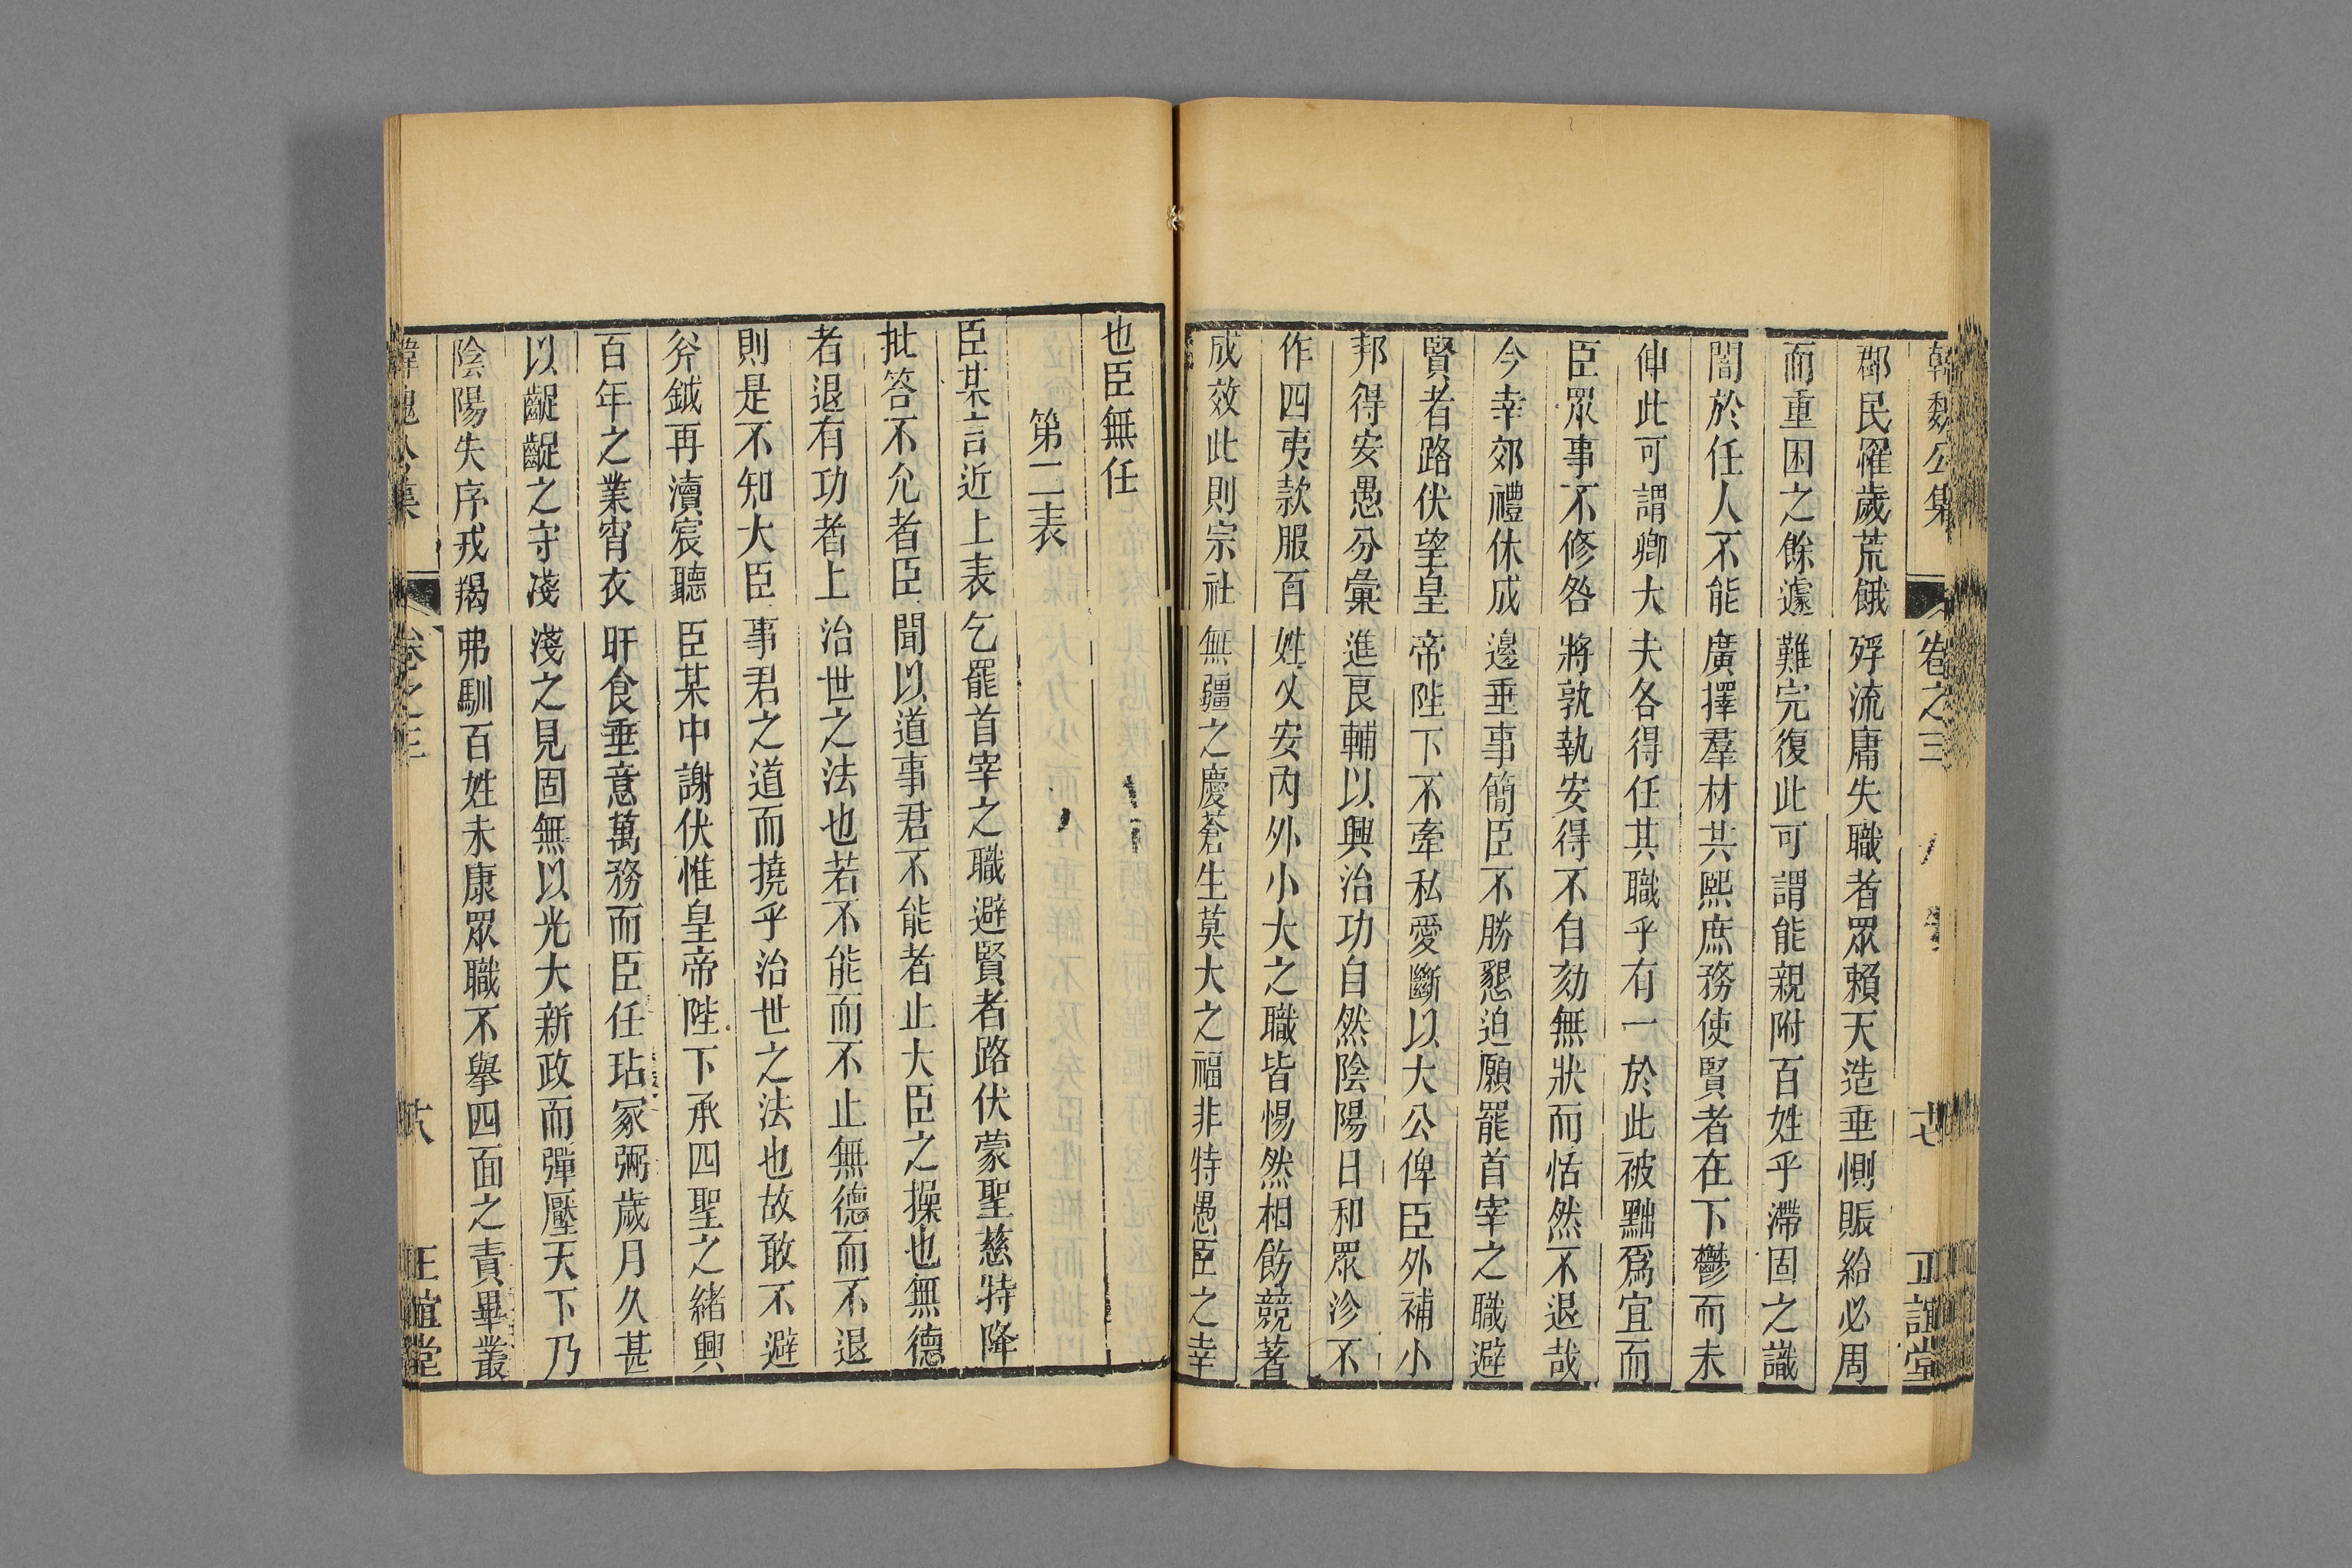 韓魏公集 卷之三 十七 正誼堂
郡民罹歲荒餓殍流庸失職者眾賴天造垂惻賑給必周
而重困之餘遽難完復此可謂能親附百姓乎滯固之識
闇於任人不能廣擇羣材共熙庶務使賢者在下鬱而未
伸此可謂卿大夫各得任其職乎有一於此被黜爲宜而
臣眾事不修咎將孰執安得不自劾無狀而恬然不退哉
今幸郊禮休成邊垂事簡臣不勝懇迫願罷首宰之職避
賢者路伏望皇帝陛下不牽私愛斷以大公俾臣外補小
邦得安愚分彙進良輔以興治功自然陰陽日和眾沴不
作四夷款服百姓乂安內外小大之職皆惕然相飭競著
成效此則宗社無疆之慶蒼生莫大之福非特愚臣之幸
也臣無任
第二表
臣某言近上表乞罷首宰之職避賢者路伏蒙聖慈特降
批答不允者臣聞以道事君不能者止大臣之操也無德
者退有功者上治世之法也若不能而不止無德而不退
則是不知大臣事君之道而撓乎治世之法也故敢不避
斧鉞再瀆宸聽臣某中謝伏惟皇帝陛下承四聖之緒興
百年之業宵衣旰食垂意萬務而臣任玷冢弼歲月久甚
以齪齪之守淺淺之見固無以光大新政而彈壓天下乃
陰陽失序戎羯弗馴百姓未康眾職不舉四面之責畢叢
韓魏公集 卷之三 十八 正誼堂